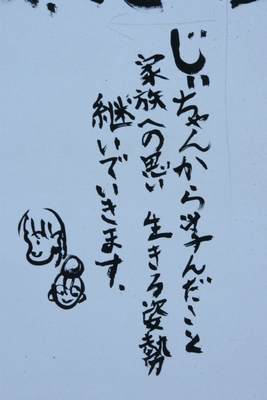 じいちゃんから学んだこと
家族への思い 生きる姿勢
継いでいきます。